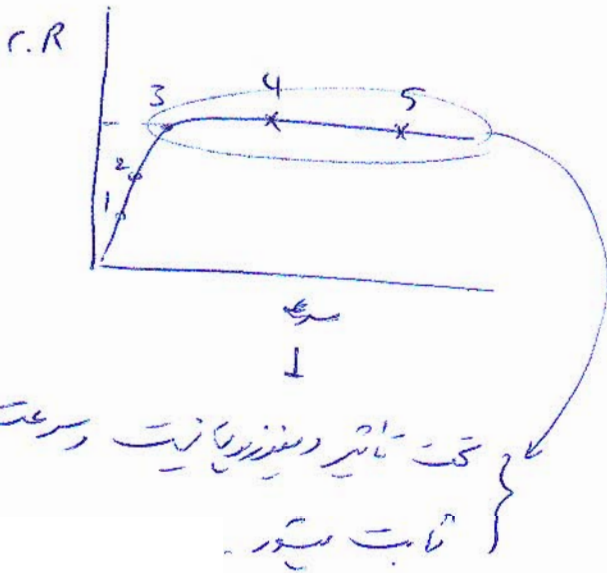 C.R
3 4 5
2
1
سرعت
تحت تاثیر دیفوزیون نیست و سرعت
ثابت میشود.